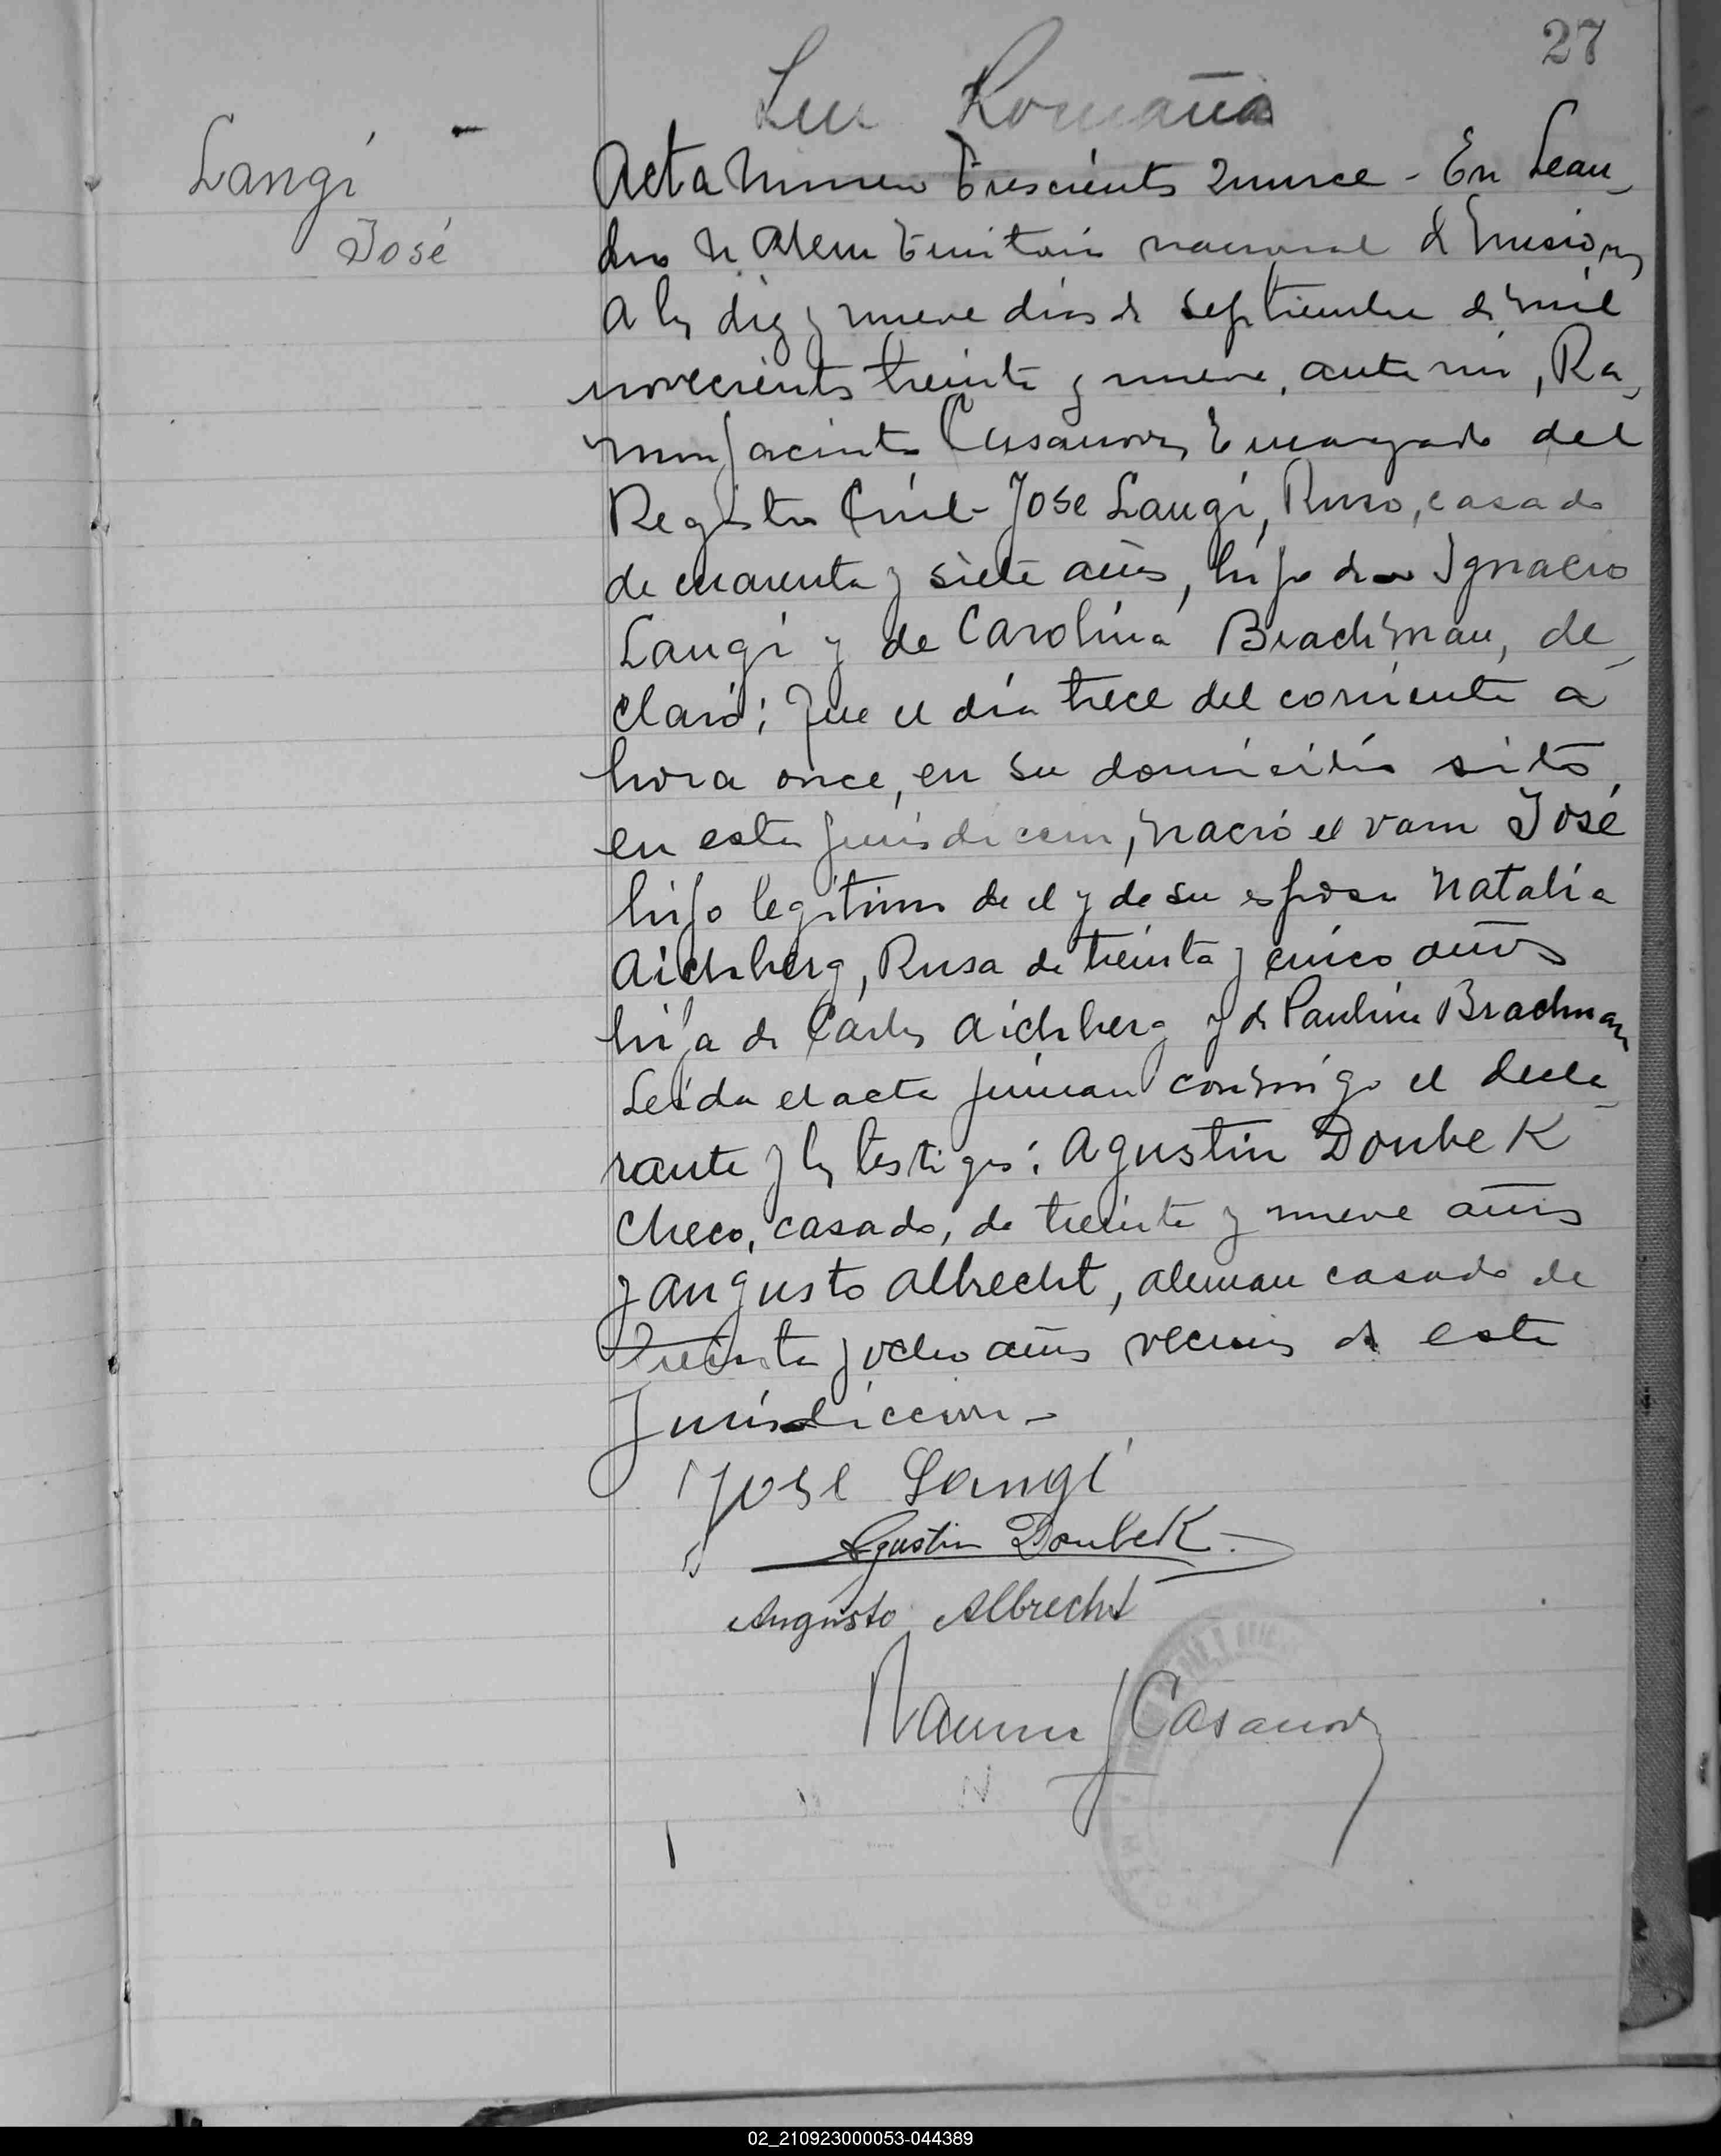 27
Langi
José
Acta Número Trescientos Quince - En Lean
dro N Alem Territorio nacional de Misiones
a los diez y nueve dias de Septiembre de mil
novecientos treinta y nueve, ante mi, Ra
mon Jacinto Casanova, Encargado del
Registro Civil - José Langi, Ruso, casado
de cuarenta y siete años, hijo de Ignacio
Langi y de Carolina Brachman, de
claró; Que el día trece del corriente a
hora once, en su domicilio sito
en esta jurisdiccion, nació el varon José
hijo legitimo de el y de su esposa Natalia
Aichberg, Rusa de treinta y cinco años
hija de Carlos Aichberg y de Paulina Brachman
Leida el acta firman conmigo el decla
rante y los testigos: Agustin Doubek
Checo, casado, de treinta y nueve años
y Augusto Albrecht, aleman casado de
treinta y ocho años vecinos de esta
Jurisdiccion -
José Langi
Agustin Doubek
Augusto Albrecht
Ramon J Casanova
02_210923000053-044389